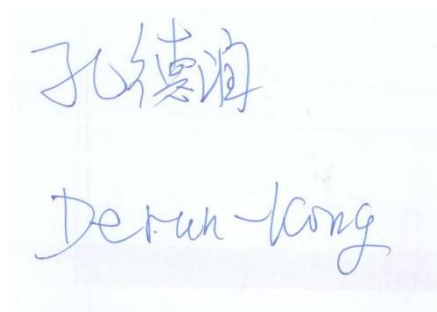 孔德润
Derun Kong